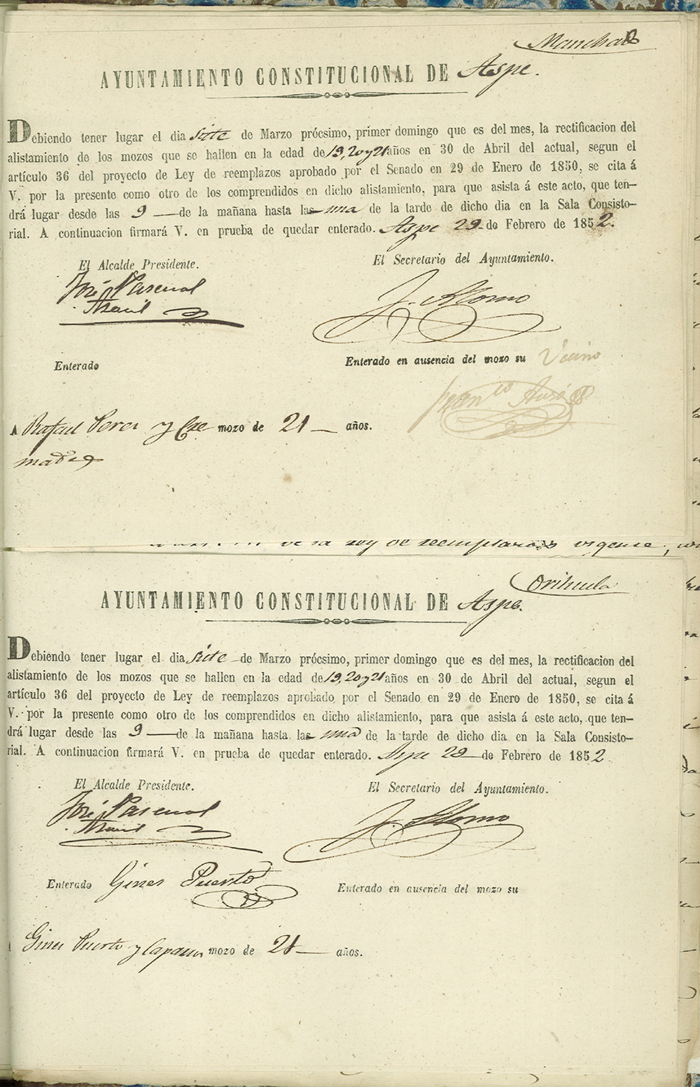 AYUNTAMIENTO CONSTITUCIONAL DE Aspe.
Debiendo tener lugar el dia siete de Marzo prócsimo, primer domingo que es del mes, la rectificacion del
alistamiento de los mozos que se hallen en la edad de 19, 20 y 21 años en 30 de Abril del actual, segun el
artículo 36 del proyecto de Ley de reemplazos aprobado por el Senado en 29 de Enero de 1850, se cita á
V. por la presente como otro de los comprendidos en dicho alistamiento, para que asista á este acto, que ten-
drá lugar desde las 9 de la mañana hasta las una de la tarde de dicho dia en la Sala Consisto-
rial. A continuacion firmará V. en prueba de quedar enterado. Aspe 29 de Febrero de 1852.
El Alcalde Presidente. El Secretario del Ayuntamiento.
José Pascual J. Alonso
Enterado Enterado en ausencia del mozo su Vecino
A Rafael Perez y mozo de 21 años.
de la ley de reemplazos vigente,
Orihuela
AYUNTAMIENTO CONSTITUCIONAL DE Aspe.
Debiendo tener lugar el dia siete de Marzo prócsimo, primer domingo que es del mes, la rectificacion del
alistamiento de los mozos que se hallen en la edad de 19, 20 y 21 años en 30 de Abril del actual, segun el
artículo 36 del proyecto de Ley de reemplazos aprobado por el Senado en 29 de Enero de 1850, se cita á
V. por la presente como otro de los comprendidos en dicho alistamiento, para que asista á este acto, que ten-
drá lugar desde las 9 de la mañana hasta las una de la tarde de dicho dia en la Sala Consisto-
rial. A continuacion firmará V. en prueba de quedar enterado. Aspe 29 de Febrero de 1852
El Alcalde Presidente. El Secretario del Ayuntamiento.
José Pascual J. Alonso
Enterado Gines Puerto Enterado en ausencia del mozo su
A Gines Puerto y mozo de 21 años.